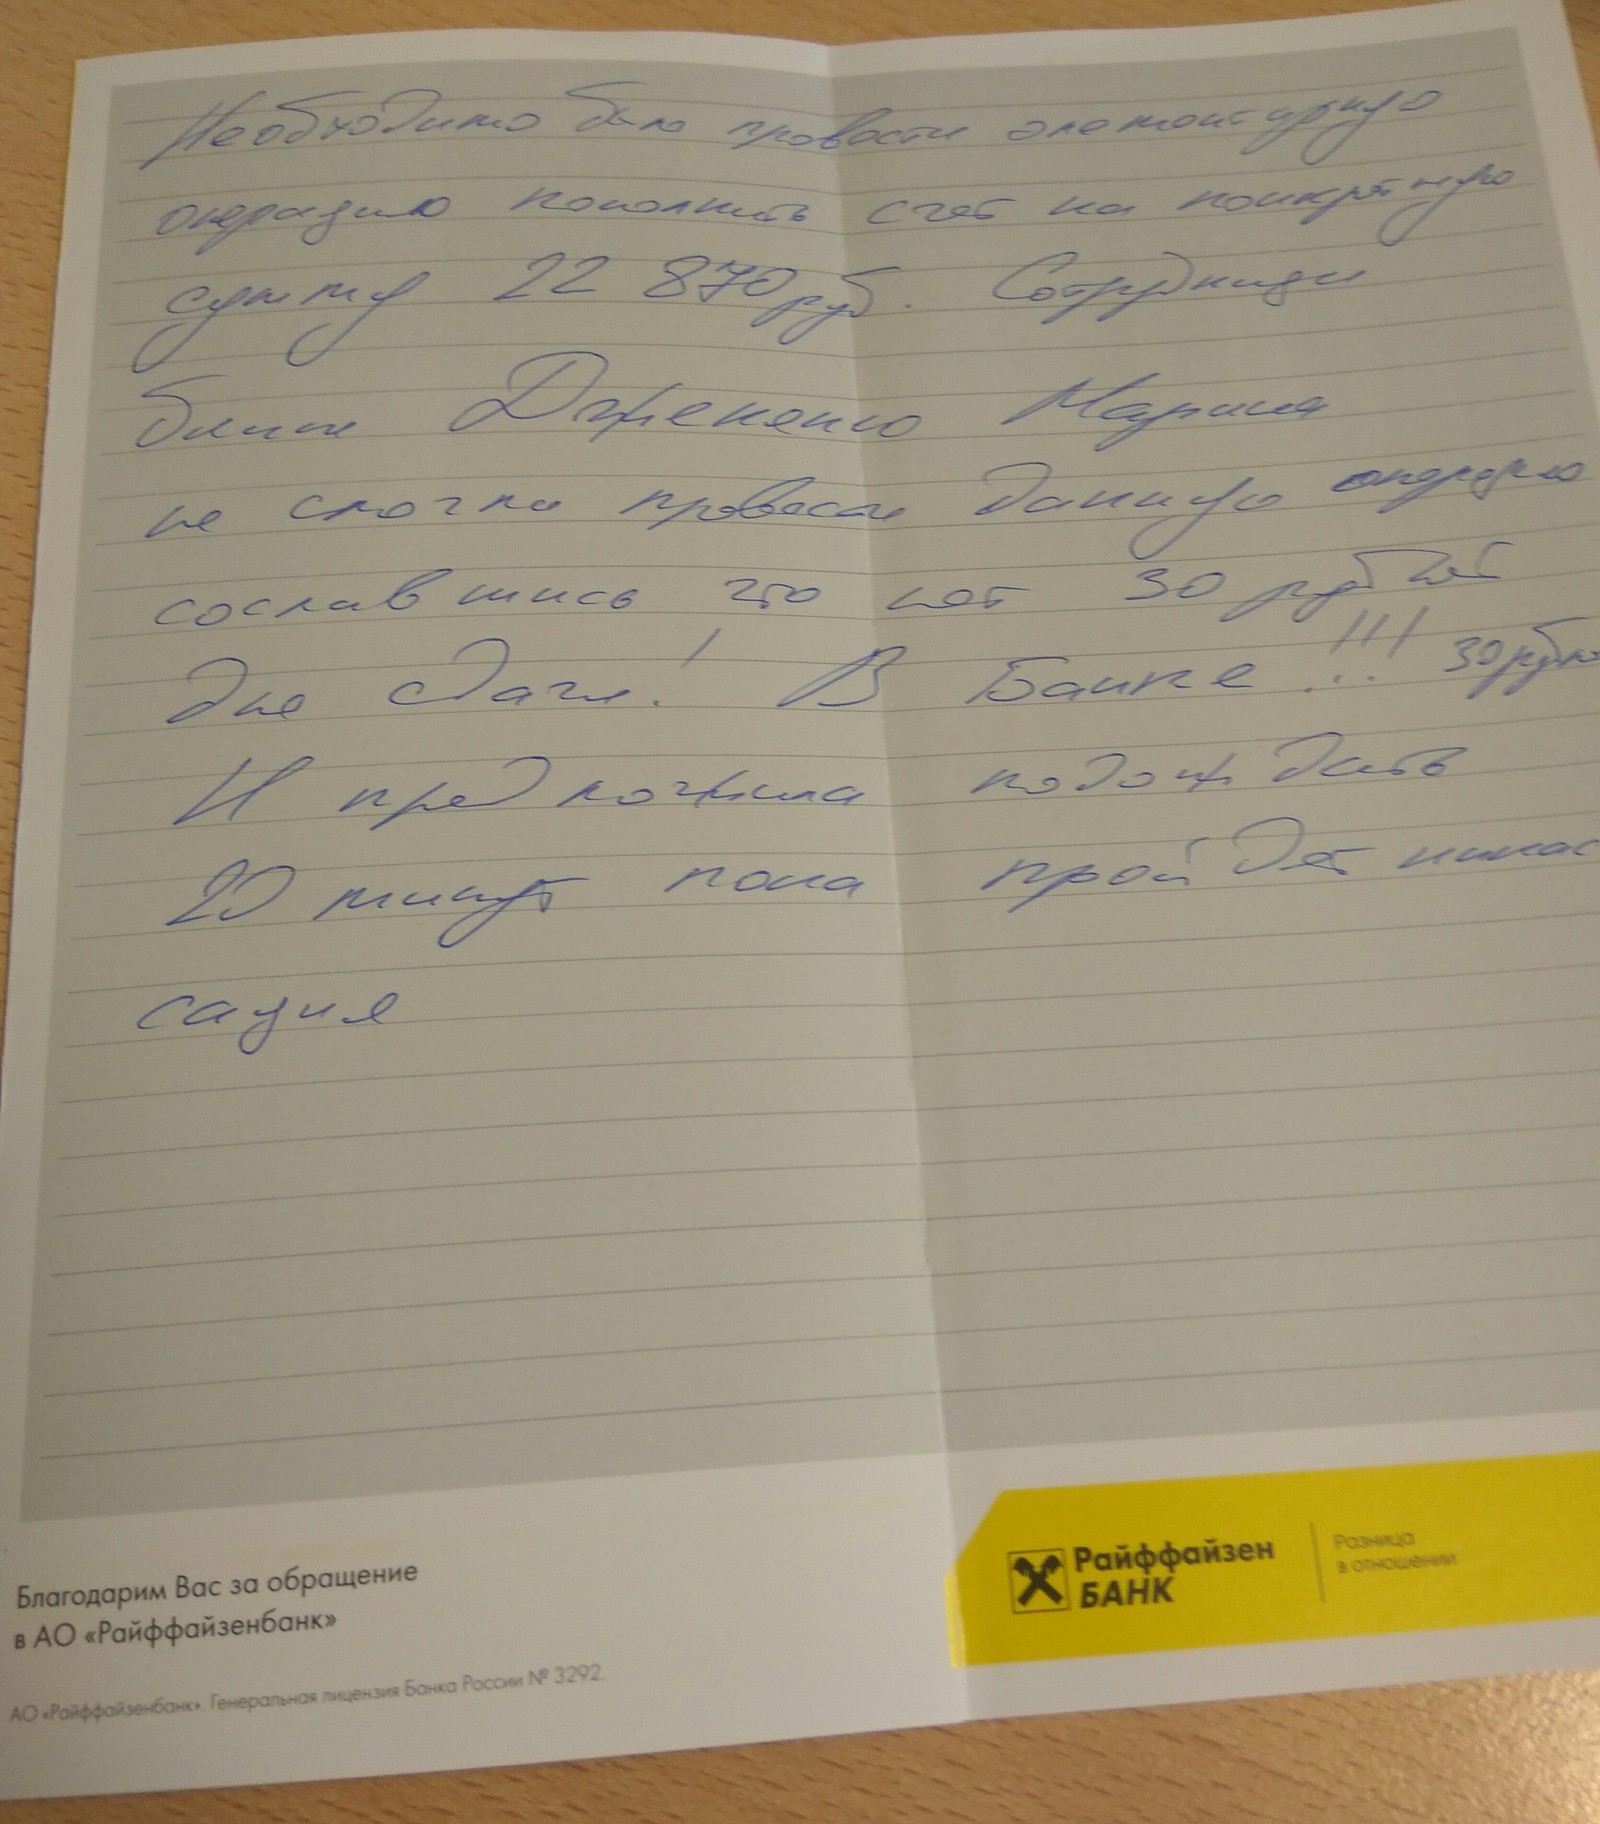 Необходимо было провести элементарную
операцию пополнить счет на конкретную
сумму 22 870 руб. Сотрудница
банка Марина
не смогла провести данную операцию
сославшись что нет 30 рублей
для сдачи! В Банке!!! 30 рубле
И предложила подождать
20 минут пока пройдет инкас
сация
Благодарим Вас за обращение
в АО «Райффайзенбанк»
АО «Райффайзенбанк». Генеральная лицензия Банка России № 3292.
Райффайзен
БАНК
Разница
в отношении